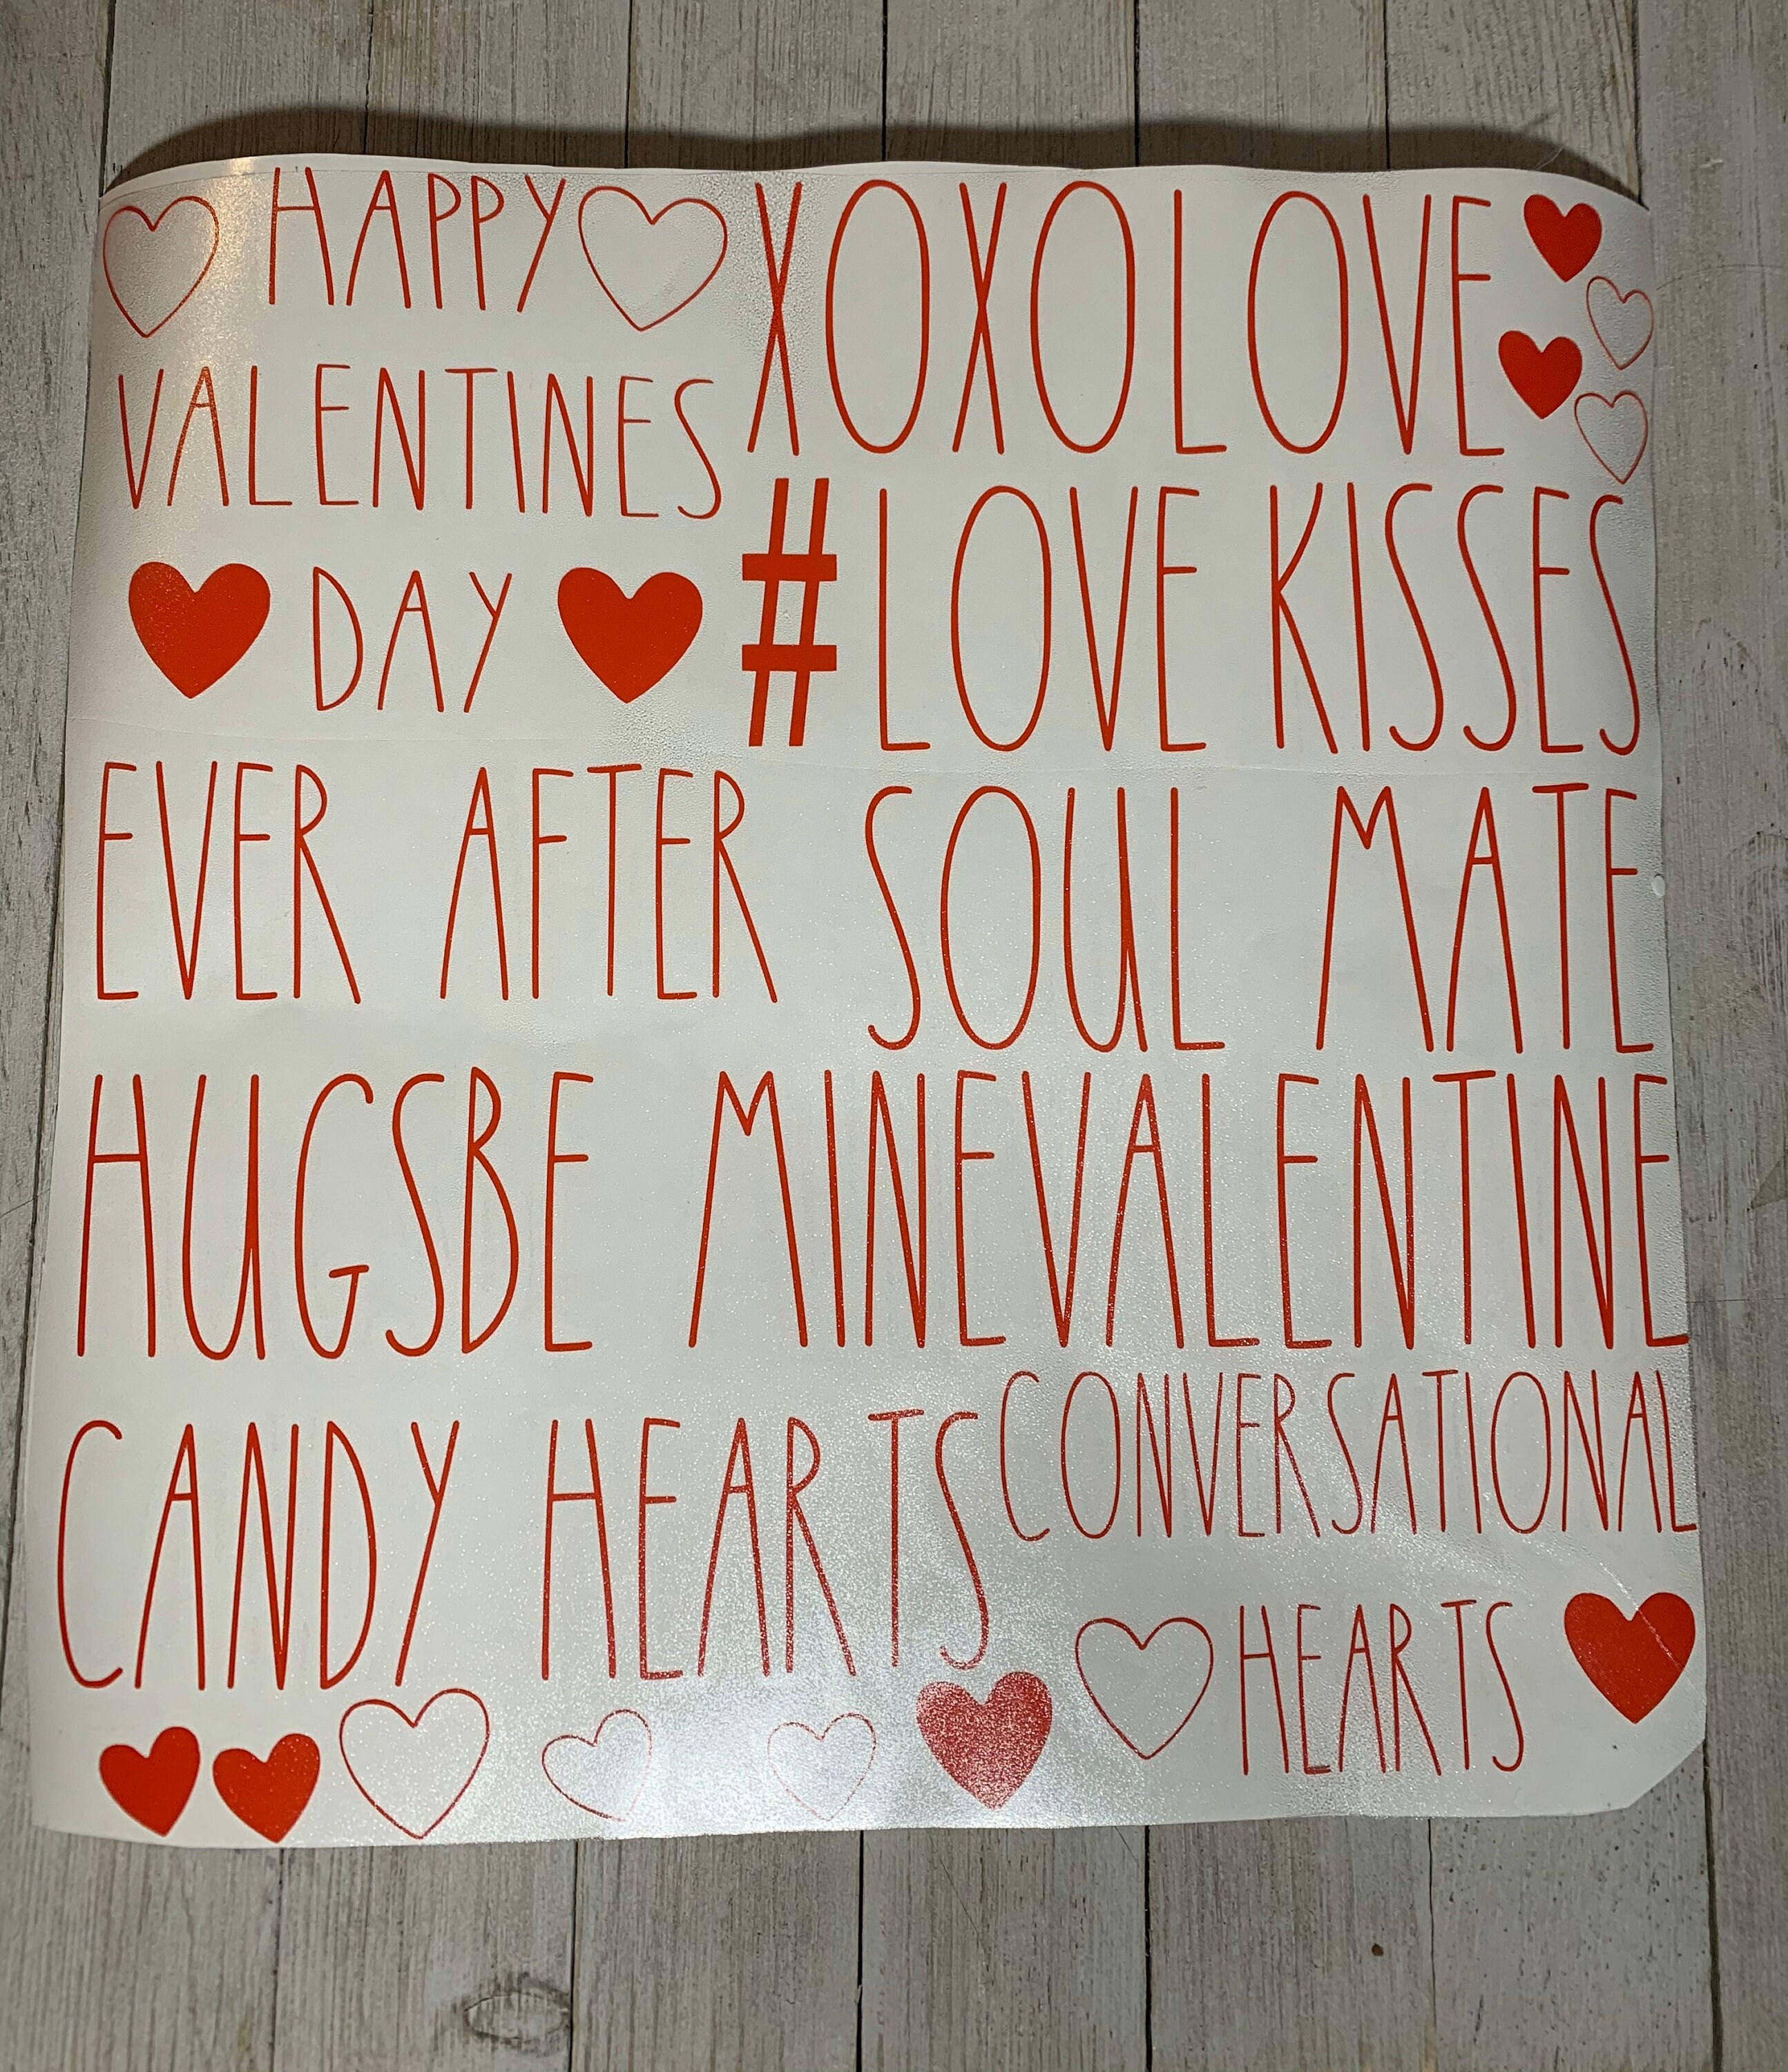 HAPPY
VALENTINES
DAY
XOXOLOVE
#LOVE KISSES
EVER AFTER SOUL MATE
HUGSBE MINEVALENTINE
CANDY HEARTS
CONVERSATIONAL
HEARTS